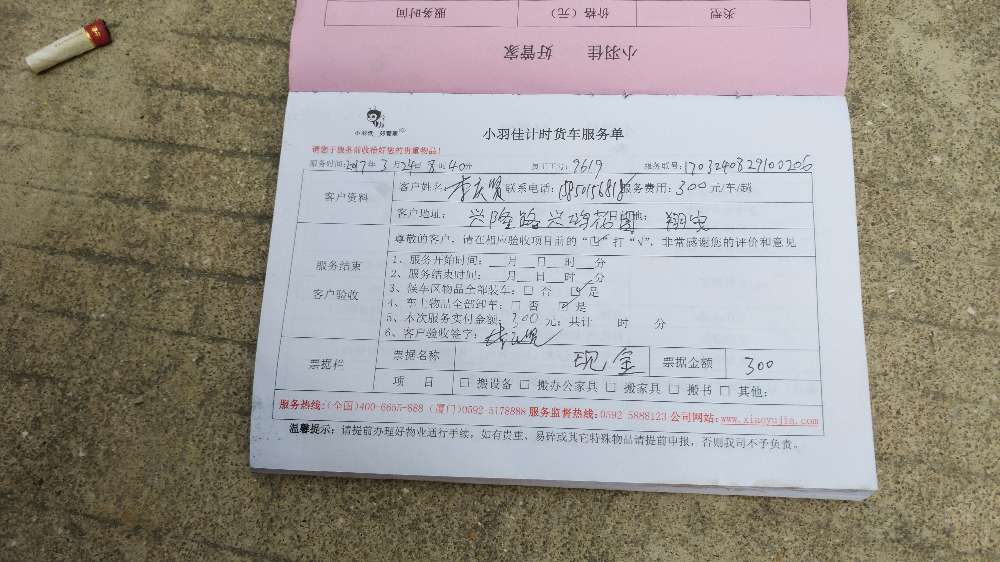 类型 价格（元） 服务时间
小羽佳 好管家
小羽佳 好管家
小羽佳计时货车服务单
请您于服务前收拾好您的贵重物品！
服务时间：2017年3月24日8时40分 员工工号：9619 服务账号：1703240829100206
客户资料
客户姓名： 联系电话： 服务费用：300元/车/趟
客户地址：兴隆路 花园
尊敬的客户，请在相应验收项目前的“□”打“√”，非常感谢您的评价和意见
服务结束
客户验收
1、服务开始时间：__月__日__时__分
2、服务结束时间：__月__日__时__分
3、候车区物品全部装车：□ 否 ☑ 是
4、车上物品全部卸车：□ 否 ☑ 是
5、本次服务实付金额：300元；共计 时 分
6、客户验收签字：
票据栏
票据名称 现金 票据金额 300
项 目 □ 搬设备 □ 搬办公家具 □ 搬家具 □ 搬书 □ 其他：
服务热线：(全国)400-6655-888 (厦门)0592-5178888 服务监督热线：0592-5888123 公司网站：www.xiaoyujia.com
温馨提示：请提前办理好物业通行手续，如有贵重、易碎或其它特殊物品请提前申报，否则我司不予负责。